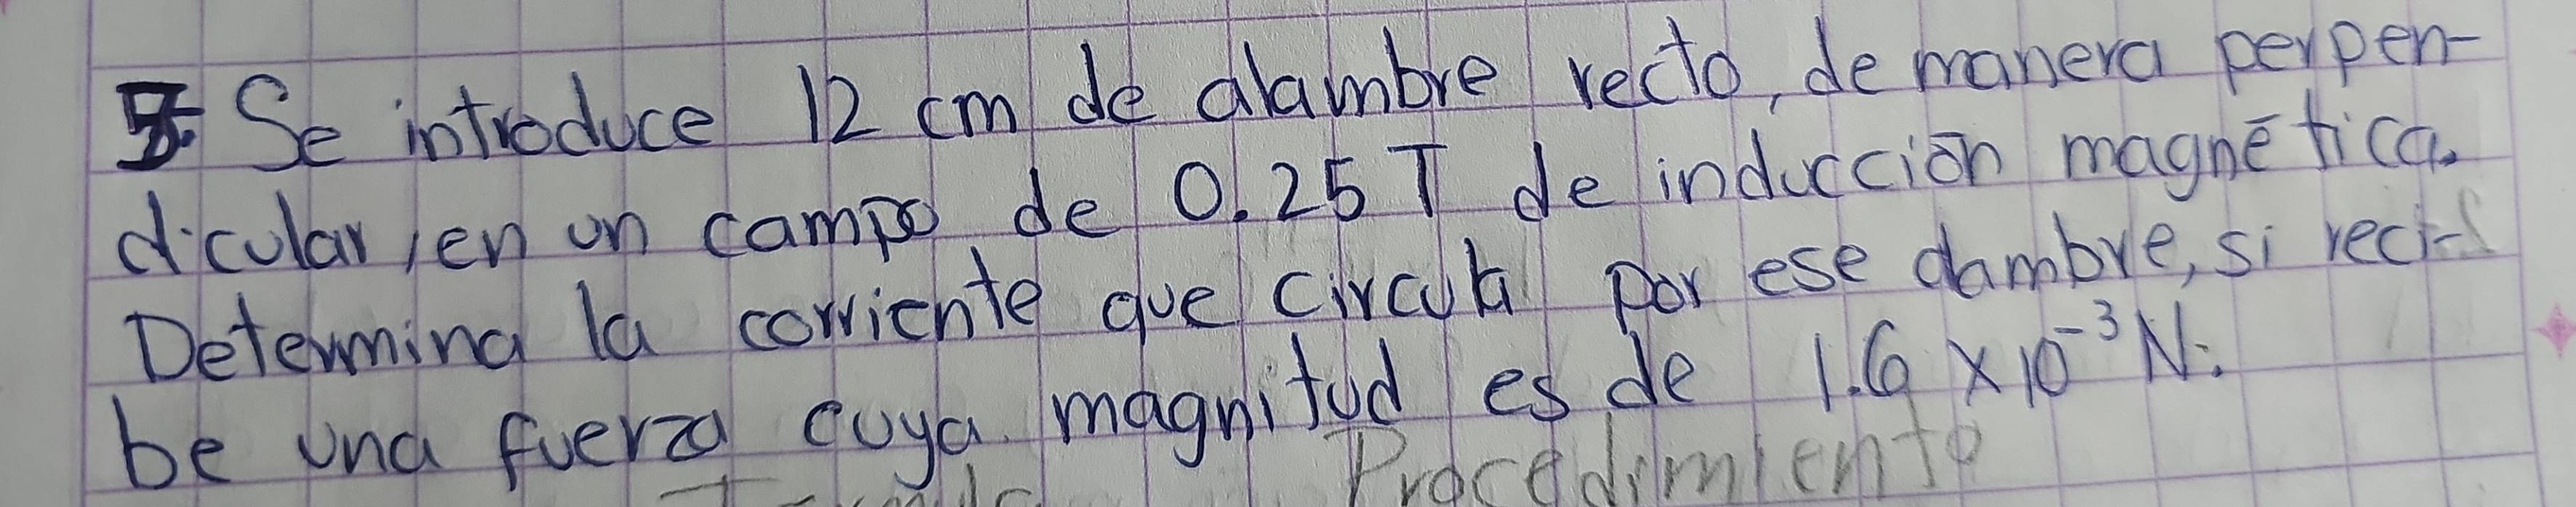 5. Se introduce 12 cm de alambre recto, de manera perpen-
dicular, en un campo de 0.25 T de inducción magnética.
Determina la corriente que circula por ese alambre, si reci-
be una fuerza cuya magnitud es de 1.6 x 10⁻³ N.
Procedimiento